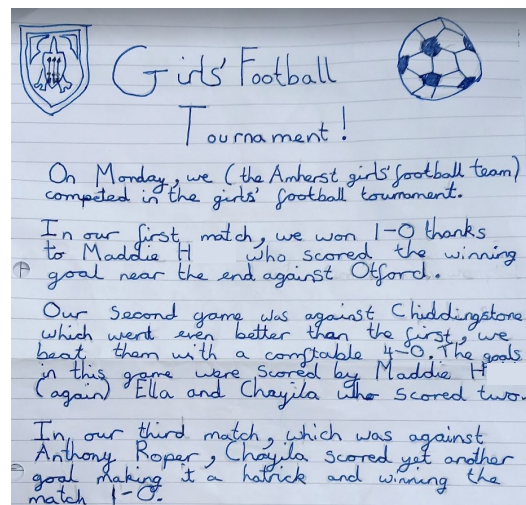 Girls' Football
Tournament!
On Monday, we (the Amherst girls' football team)
competed in the girls' football tournament.
In our first match, we won 1-0 thanks
to Maddie H who scored the winning
goal near the end against Otford.
Our second game was against Chiddingstone
which went even better than the first, we
beat them with a comftable 4-0. The goals
in this game were scored by Maddie H
(again) Ella and Chayila who scored two.
In our third match, which was against
Anthony Roper, Chayila scored yet another
goal making it a hatrick and winning the
match 1-0.